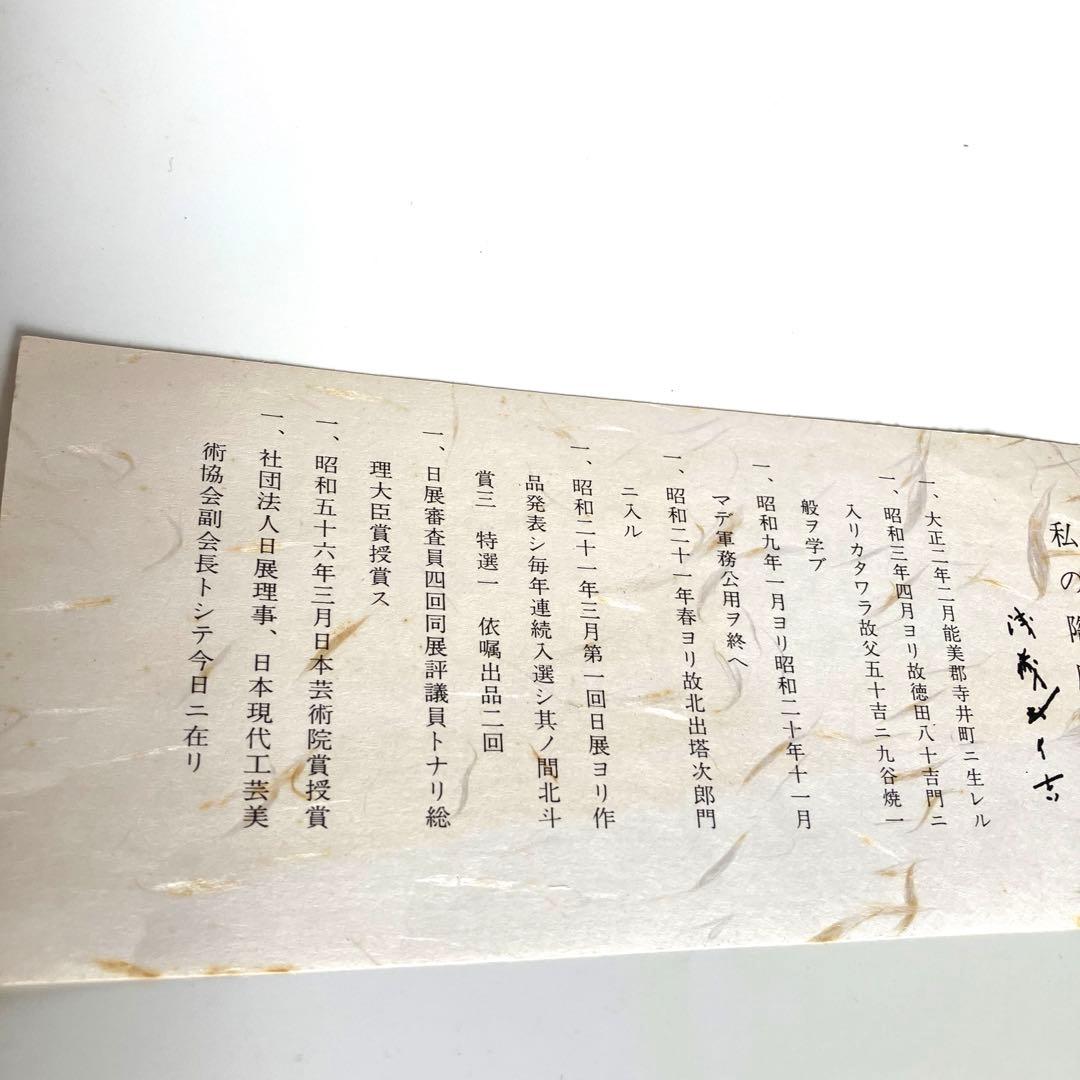 私の陶
浅蔵五十吉
一、大正二年二月能美郡寺井町ニ生レル
一、昭和三年四月ヨリ故徳田八十吉門ニ
入リカタワラ故父五十吉ニ九谷焼一
般ヲ学ブ
一、昭和九年一月ヨリ昭和二十年十一月
マデ軍務公用ヲ終へ
一、昭和二十一年春ヨリ故北出塔次郎門
ニ入ル
一、昭和二十一年三月第一回日展ヨリ作
品発表シ毎年連続入選シ其ノ間北斗
賞三　特選一　依嘱出品二回
一、日展審査員四回同展評議員トナリ総
理大臣賞授賞ス
一、昭和五十六年三月日本芸術院賞授賞
一、社団法人日展理事、日本現代工芸美
術協会副会長トシテ今日ニ在リ